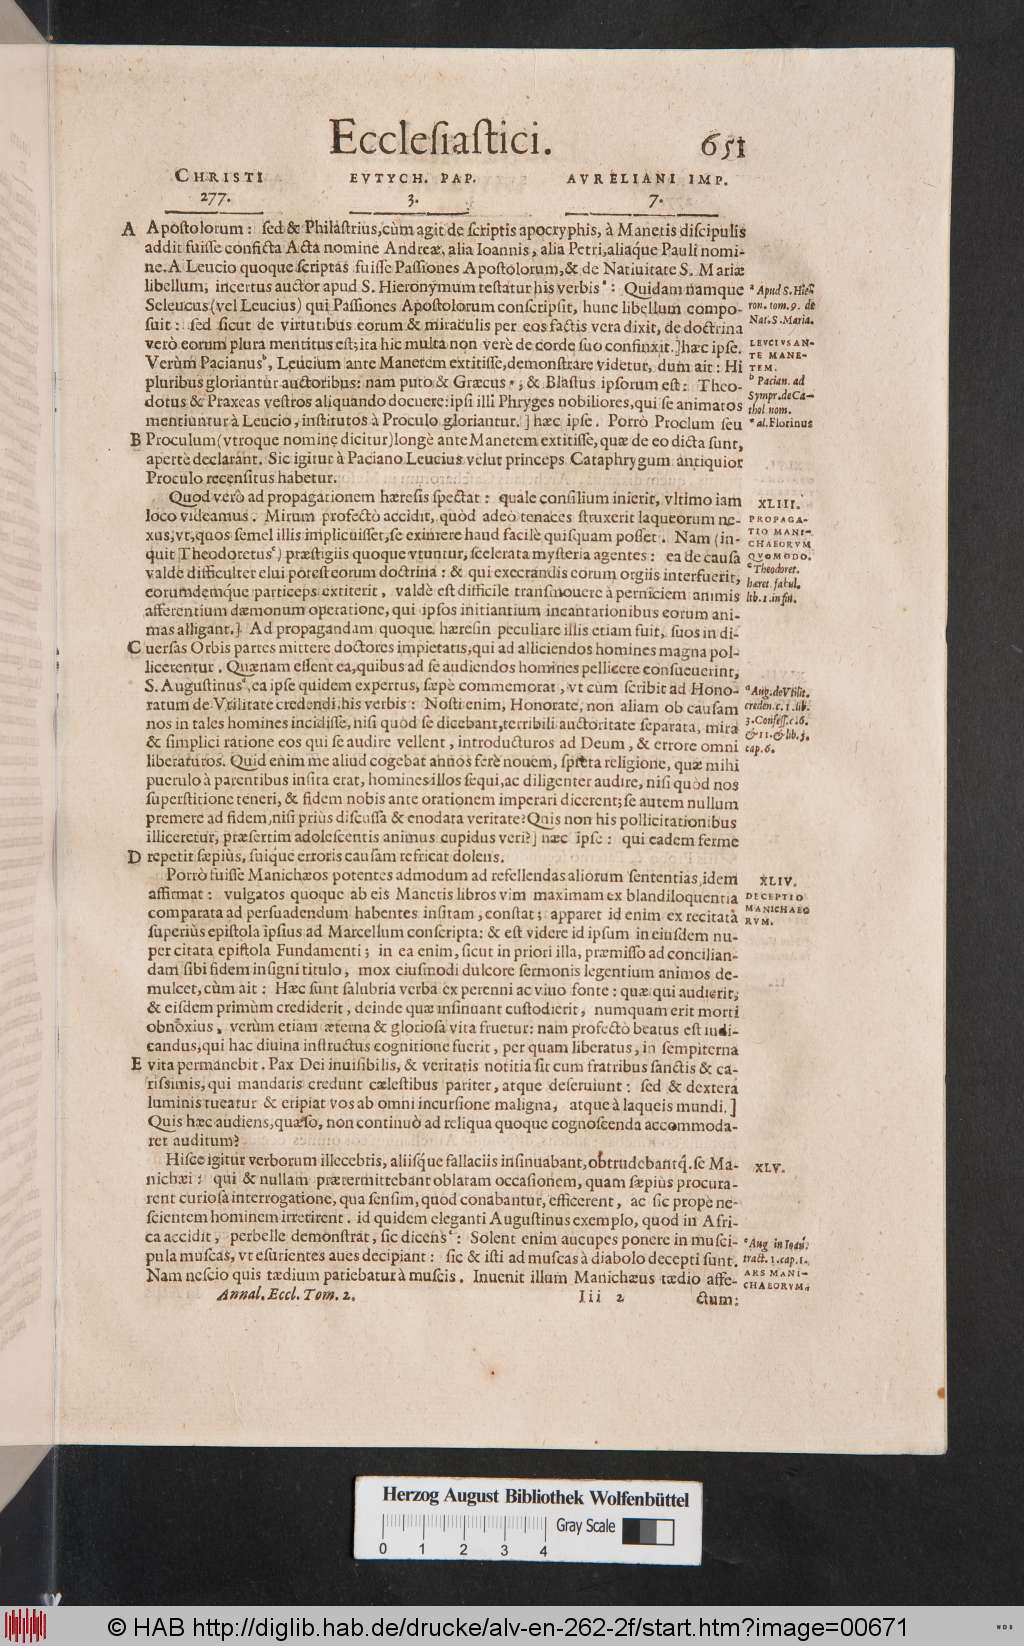 Ecclesiastici. 651
CHRISTI EVTYCH. PAP. AVRELIANI IMP.
277. 3. 7.
A Apostolorum: sed & Philastrius, cùm agit de scriptis apocryphis, à Manetis discipulis
addit fuisse conficta Acta nomine Andreæ, alia Ioannis, alia Petri, aliaque Pauli nomi-
ne. A Leucio quoque scriptas fuisse Passiones Apostolorum, & de Natiuitate S. Mariæ
libellum, incertus auctor apud S. Hieronymum testatur his verbis a: Quidam namque
Seleucus (vel Leucius) qui Passiones Apostolorum conscripsit, hunc libellum compo-
suit: sed sicut de virtutibus eorum & miraculis per eos factis vera dixit, de doctrina
verò eorum plura mentitus est; ita hic multa non verè de corde suo confinxit.] hæc ipse.
Verùm Pacianus b, Leucium ante Manetem extitisse, demonstrare videtur, dum ait: Hi
pluribus gloriantur auctoribus: nam puto & Græcus *; & Blastus ipsorum est: Theo-
dotus & Praxeas vestros aliquando docuere: ipsi illi Phryges nobiliores, qui se animatos
mentiuntur à Leucio, institutos à Proculo gloriantur.] hæc ipse. Porrò Proclum seu
B Proculum (vtroque nomine dicitur) longè ante Manetem extitisse, quæ de eo dicta sunt,
apertè declarant. Sic igitur à Paciano Leucius velut princeps Cataphrygum antiquior
Proculo recensitus habetur.
a Apud S. Hier
ron. tom. 9. de
Nat. S. Maria.
LEVCIVS AN-
TE MANE-
TEM.
b Pacian. ad
Sympr. de Ca-
thol nom.
* al. Florinus
Quod verò ad propagationem hæresis spectat: quale consilium inierit, vltimo iam
loco videamus. Mirum profectò accidit, quòd adeò tenaces struxerit laqueorum ne-
xus, vt, quos semel illis implicuisset, se eximere haud facilè quisquam posset. Nam (in-
quit Theodoretus c) præstigiis quoque vtuntur, scelerata mysteria agentes: ea de causa
valdè difficulter elui potest eorum doctrina: & qui execrandis eorum orgiis interfuerit,
eorumdemque particeps extiterit, valdè est difficile transmouere à perniciem animis
afferentium dæmonum operatione, qui ipsos initiantium incantationibus eorum ani-
mas alligant.] Ad propagandam quoque hæresin peculiare illis etiam fuit, suos in di-
C uersas Orbis partes mittere doctores impietatis, qui ad alliciendos homines magna pol-
licerentur. Quænam essent ea, quibus ad se audiendos homines pellicere consueuerint,
S. Augustinus d, ea ipse quidem expertus, sæpè commemorat, vt cùm scribit ad Hono-
ratum de Vtilitate credendi, his verbis: Nosti enim, Honorate, non aliam ob causam
nos in tales homines incidisse, nisi quòd se dicebant, terribili auctoritate separata, mira
& simplici ratione eos qui se audire vellent, introducturos ad Deum, & errore omni
liberaturos. Quid enim me aliud cogebat annos ferè nouem, spreta religione, quæ mihi
puerulo à parentibus insita erat, homines illos sequi, ac diligenter audire, nisi quòd nos
superstitione teneri, & fidem nobis ante orationem imperari dicerent; se autem nullum
premere ad fidem, nisi priùs discussa & enodata veritate? Quis non his pollicitationibus
illiceretur, præsertim adolescentis animus cupidus veri?] hæc ipse: qui eadem ferme
D repetit sæpiùs, suique erroris causam refricat dolens.
XLIII.
PROPAGA-
TIO MANI-
CHAEORVM
QVOMODO.
c Theodoret.
hæret. fabul.
lib. 1. in fin.
a Aug. de Vtilit.
creden. c. 1. lib.
3. Confess. c. 6.
& 11. & lib. 5.
cap. 6.
Porrò fuisse Manichæos potentes admodum ad refellendas aliorum sententias, idem
affirmat: vulgatos quoque ab eis Manetis libros vim maximam ex blandiloquentia
comparata ad persuadendum habentes insitam, constat; apparet id enim ex recitata
superiùs epistola ipsius ad Marcellum conscripta: & est videre id ipsum in eiusdem nu-
per citata epistola Fundamenti; in ea enim, sicut in priori illa, præmisso ad concilian-
dam sibi fidem insigni titulo, mox eiusmodi dulcore sermonis legentium animos de-
mulcet, cùm ait: Hæc sunt salubria verba ex perenni ac viuo fonte: quæ qui audierit;
& eisdem primùm crediderit, deinde quæ insinuant custodierit, numquam erit morti
obnoxius, verùm etiam æterna & gloriosa vita fruetur: nam profectò beatus est iudi-
candus, qui hac diuina instructus cognitione fuerit, per quam liberatus, in sempiterna
E vita permanebit. Pax Dei inuisibilis, & veritatis notitia sit cum fratribus sanctis & ca-
rissimis, qui mandatis credunt cælestibus pariter, atque deseruiunt: sed & dextera
luminis tueatur & eripiat vos ab omni incursione maligna, atque à laqueis mundi.]
Quis hæc audiens, quæso, non continuò ad reliqua quoque cognoscenda accommoda-
ret auditum?
XLIV.
DECEPTIO
MANICHAEO
RVM.
Hisce igitur verborum illecebris, aliisq́ue fallaciis insinuabant, obtrudebantq́. se Ma-
nichæi: qui & nullam prætermittebant oblatam occasionem, quam sæpiùs procura-
rent curiosa interrogatione, qua sensim, quod conabantur, efficerent, ac sic propè ne-
scientem hominem irretirent. id quidem eleganti Augustinus exemplo, quod in Afri-
ca accidit, perbelle demonstrat, sic dicens e: Solent enim aucupes ponere in musci-
pula muscas, vt esurientes aues decipiant: sic & isti ad muscas à diabolo decepti sunt.
Nam nescio quis tædium patiebatur à muscis. Inuenit illum Manichæus tædio affe-
XLV.
e Aug in Ioan.
tract. 1. cap. 1.
ARS MANI-
CHAEORVM.
Annal. Eccl. Tom. 2. Iii 2 ctum:
Herzog August Bibliothek Wolfenbüttel
Gray Scale
0 1 2 3 4
© HAB http://diglib.hab.de/drucke/alv-en-262-2f/start.htm?image=00671